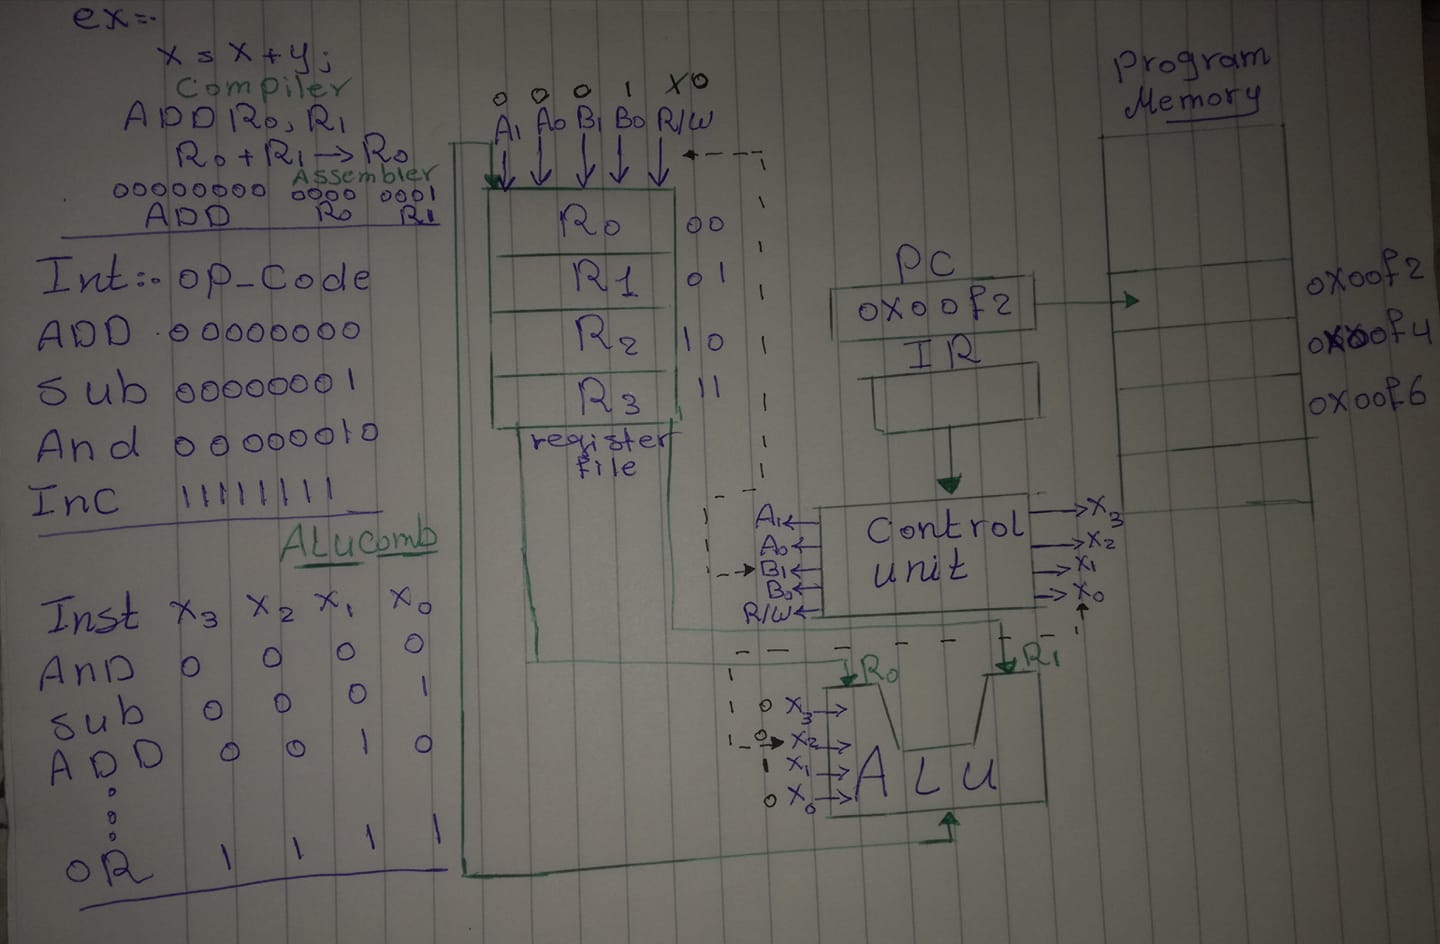 ex:-
x = x + y;
Compiler
ADD R0, R1
R0 + R1 → R0
Assembler
00000000 0000 0001
ADD R0 R1
Int:- OP-Code
ADD 00000000
Sub 00000001
And 00000010
Inc 11111111
ALU comb
Inst x3 x2 x1 x0
AnD 0 0 0 0
Sub 0 0 0 1
ADD 0 0 1 0
OR 1 1 1 1
0 0 0 1 x0
A1 A0 B1 B0 R/W
R0 00
R1 01
R2 10
R3 11
register
file
PC
0x00f2
IR
Control
unit
A1
A0
B1
B0
R/W
x3
x2
x1
x0
R0 R1
0 x3
0 x2
1 x1
0 x0
ALU
Program
Memory
0x00f2
0x00f4
0x00f6